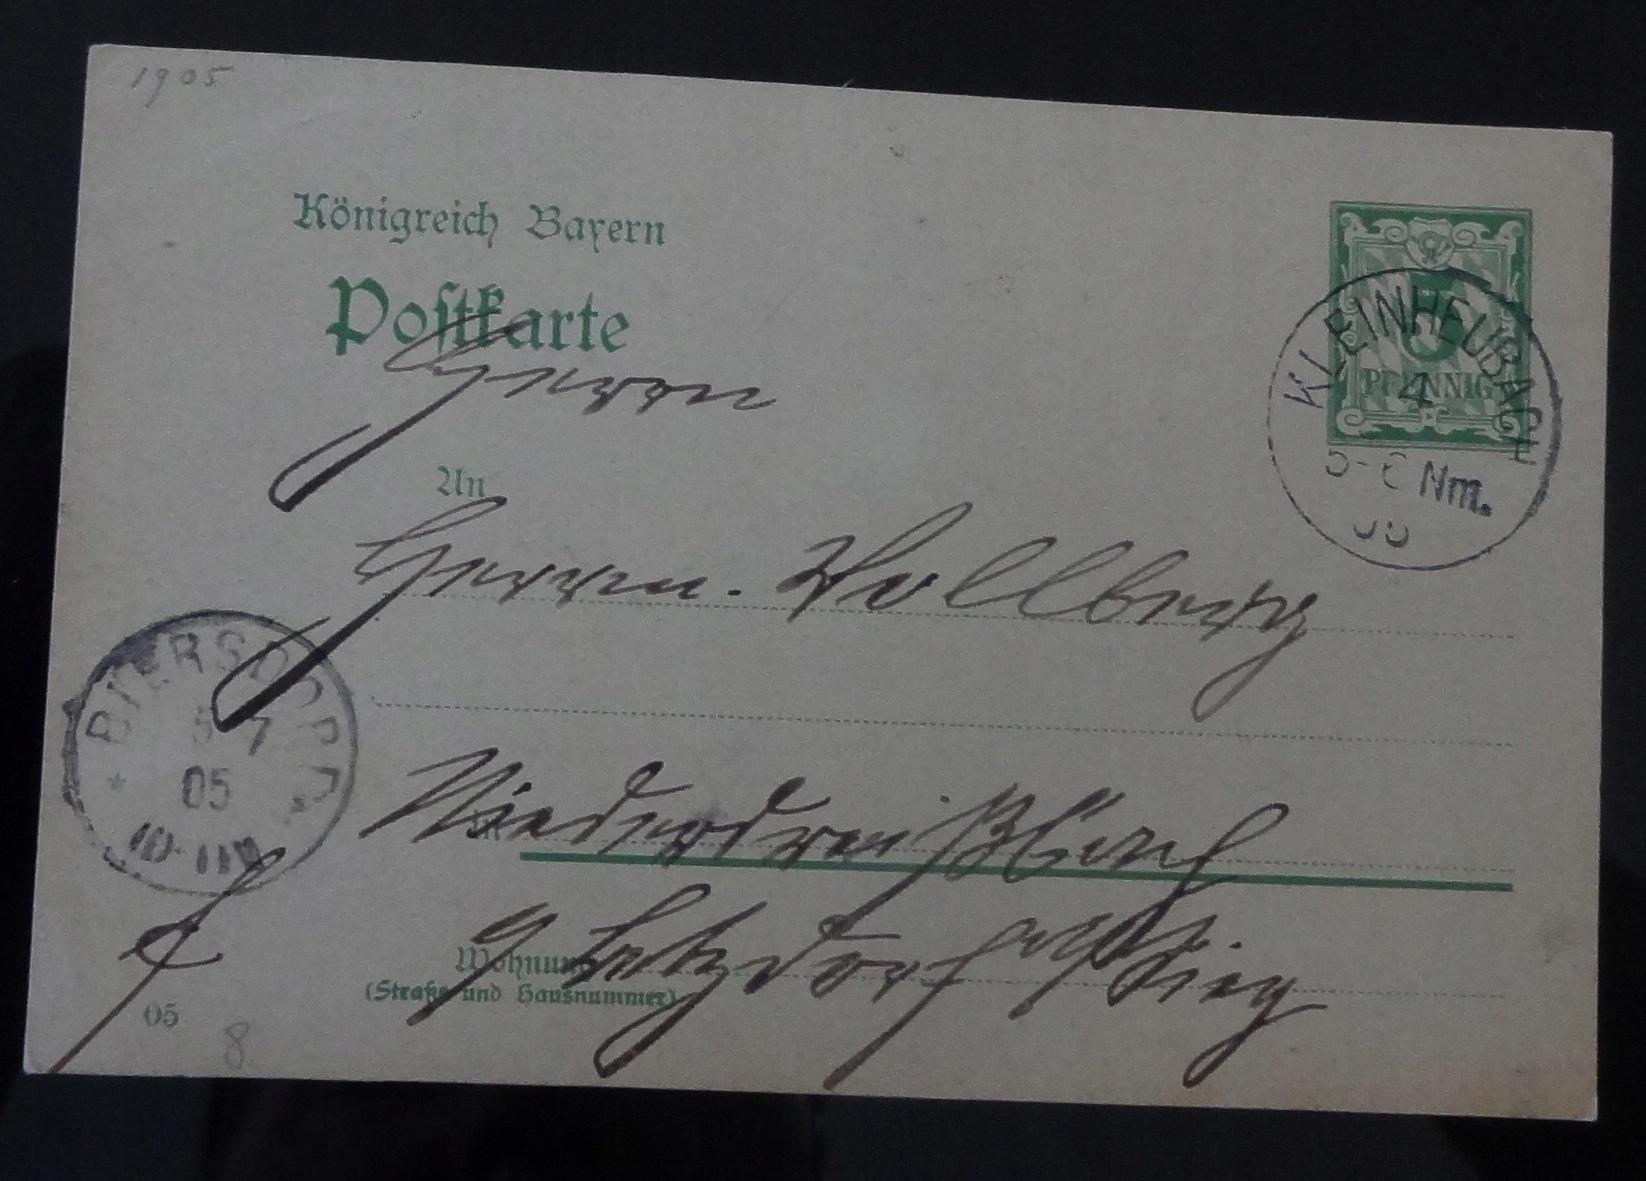 1905
Königreich Bayern
Postkarte
5
PFENNIG
KLEINHEUBACH
4
5-6 Nm.
05
Herrn
An
Herrn. Vollberg
BIERSDORF
5 7
05
10-11V
in
Niederdreisbach
Betzdorf Sieg
Wohnung
(Straße und Hausnummer)
05
8